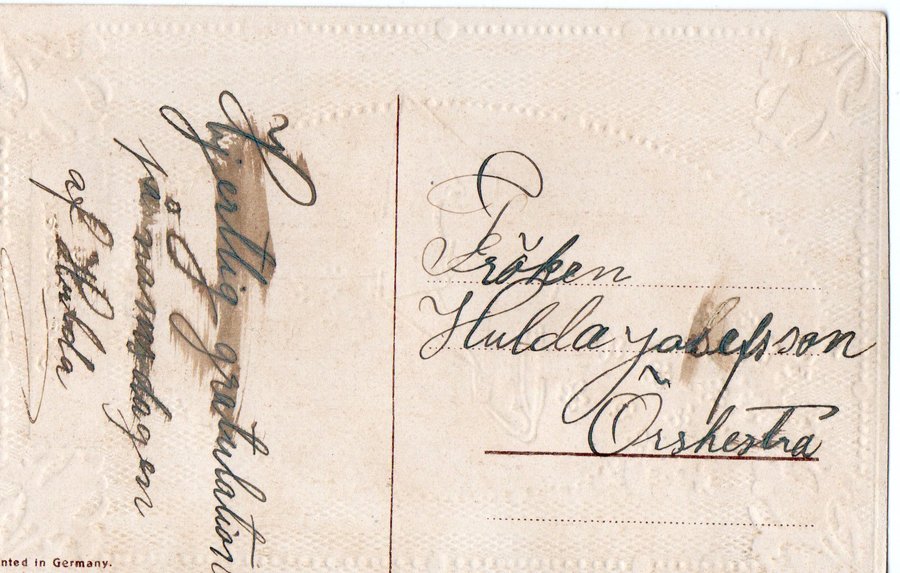 Hjertlig gratulation
på namnsdagen
af
Fröken
Hulda Josefsson
Örshestra
nted in Germany.